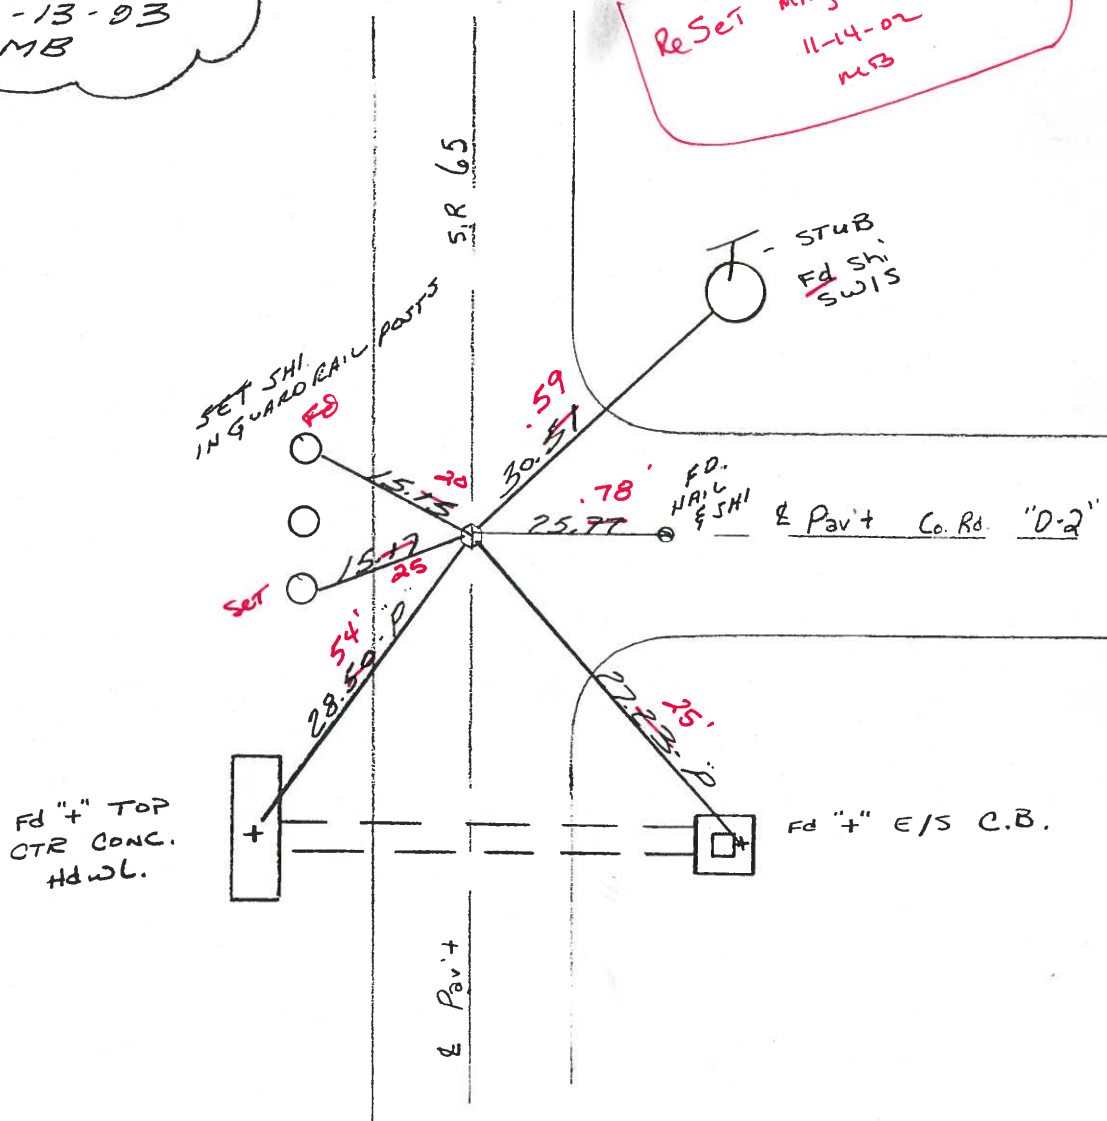 -13-03
MB
ReSeT
11-14-02
MB
S.R 65
- STUB
Fd Shi
SW/S
SET SHI.
IN GUARDRAIL POSTS
Fd
.59
30.51
15.15
20
.78'
25.77
FD.
NAIL
& SHI
℄ Pav't Co. Rd. "D-2"
15.17
25
SeT
54'
28.50 - "P"
25'
27.23 - "P"
Fd "+" TOP
CTR CONC.
HdWL.
Fd "+" E/S C.B.
℄ Pav't